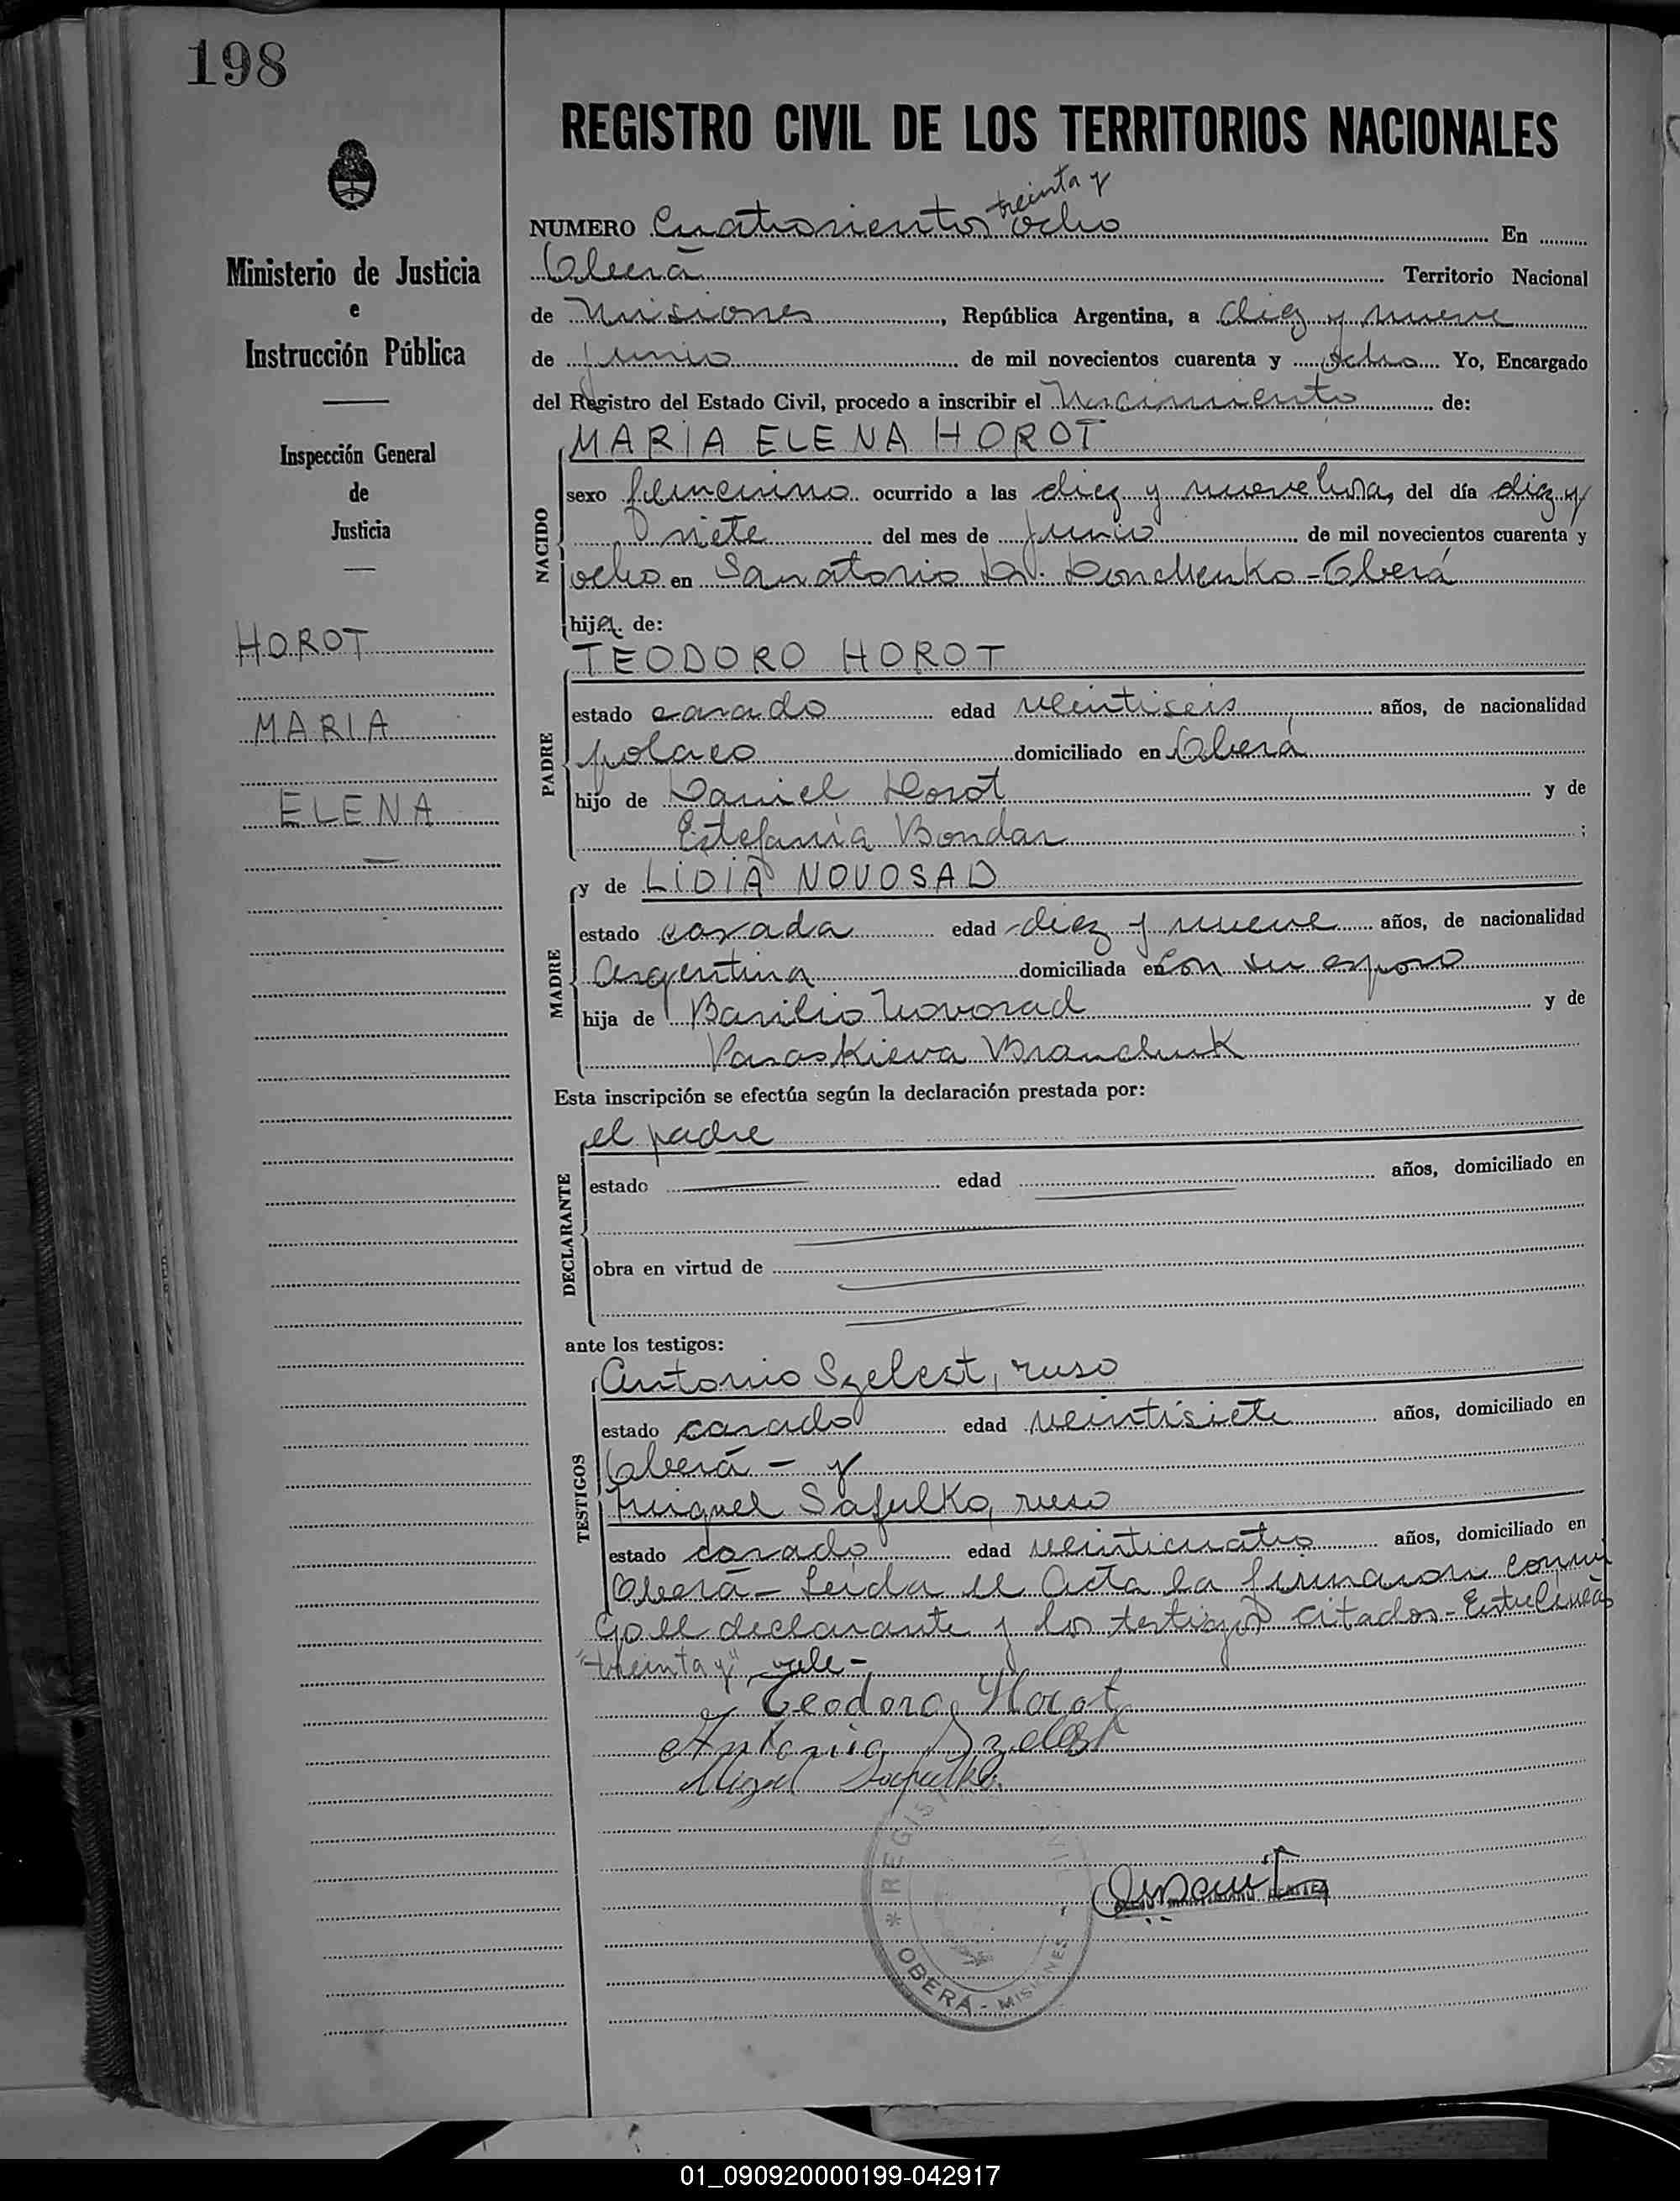 198
REGISTRO CIVIL DE LOS TERRITORIOS NACIONALES
treinta y
NUMERO Cuatrocientos ocho En
Oberá Territorio Nacional
de Misiones, República Argentina, a diez y nueve
de junio de mil novecientos cuarenta y ocho Yo, Encargado
del Registro del Estado Civil, procedo a inscribir el Nacimiento de:
MARIA ELENA HOROT
NACIDO
sexo femenino ocurrido a las diez y nueve hora, del día diez y
siete del mes de junio de mil novecientos cuarenta y
ocho en Sanatorio Dr. Donchenko - Oberá
hija de:
TEODORO HOROT
PADRE
estado casado edad veintiseis años, de nacionalidad
polaco domiciliado en Oberá
hijo de Daniel Horot y de
Estefanía Bondar;
y de LIDIA NOVOSAD
MADRE
estado casada edad diez y nueve años, de nacionalidad
Argentina domiciliada en con su esposo
hija de Basilio Novosad y de
Paraskieva Branchuk
Esta inscripción se efectúa según la declaración prestada por:
el padre
DECLARANTE
estado edad años, domiciliado en
obra en virtud de
ante los testigos:
Antonio Szelest, ruso
TESTIGOS
estado casado edad veintisiete años, domiciliado en
Oberá - y
Miguel Safulko, ruso
estado casado edad veinticuatro años, domiciliado en
Oberá - Leida el Acta la firmaron conmi
go el declarante y los testigos citados - Entrelíneas
"treinta y" vale -
Teodoro Horot
Antonio Szelest
Miguel Safulko
* REGIS
OBERÁ - MISIONES
Ministerio de Justicia
e
Instrucción Pública
Inspección General
de
Justicia
HOROT
MARIA
ELENA
01_090920000199-042917